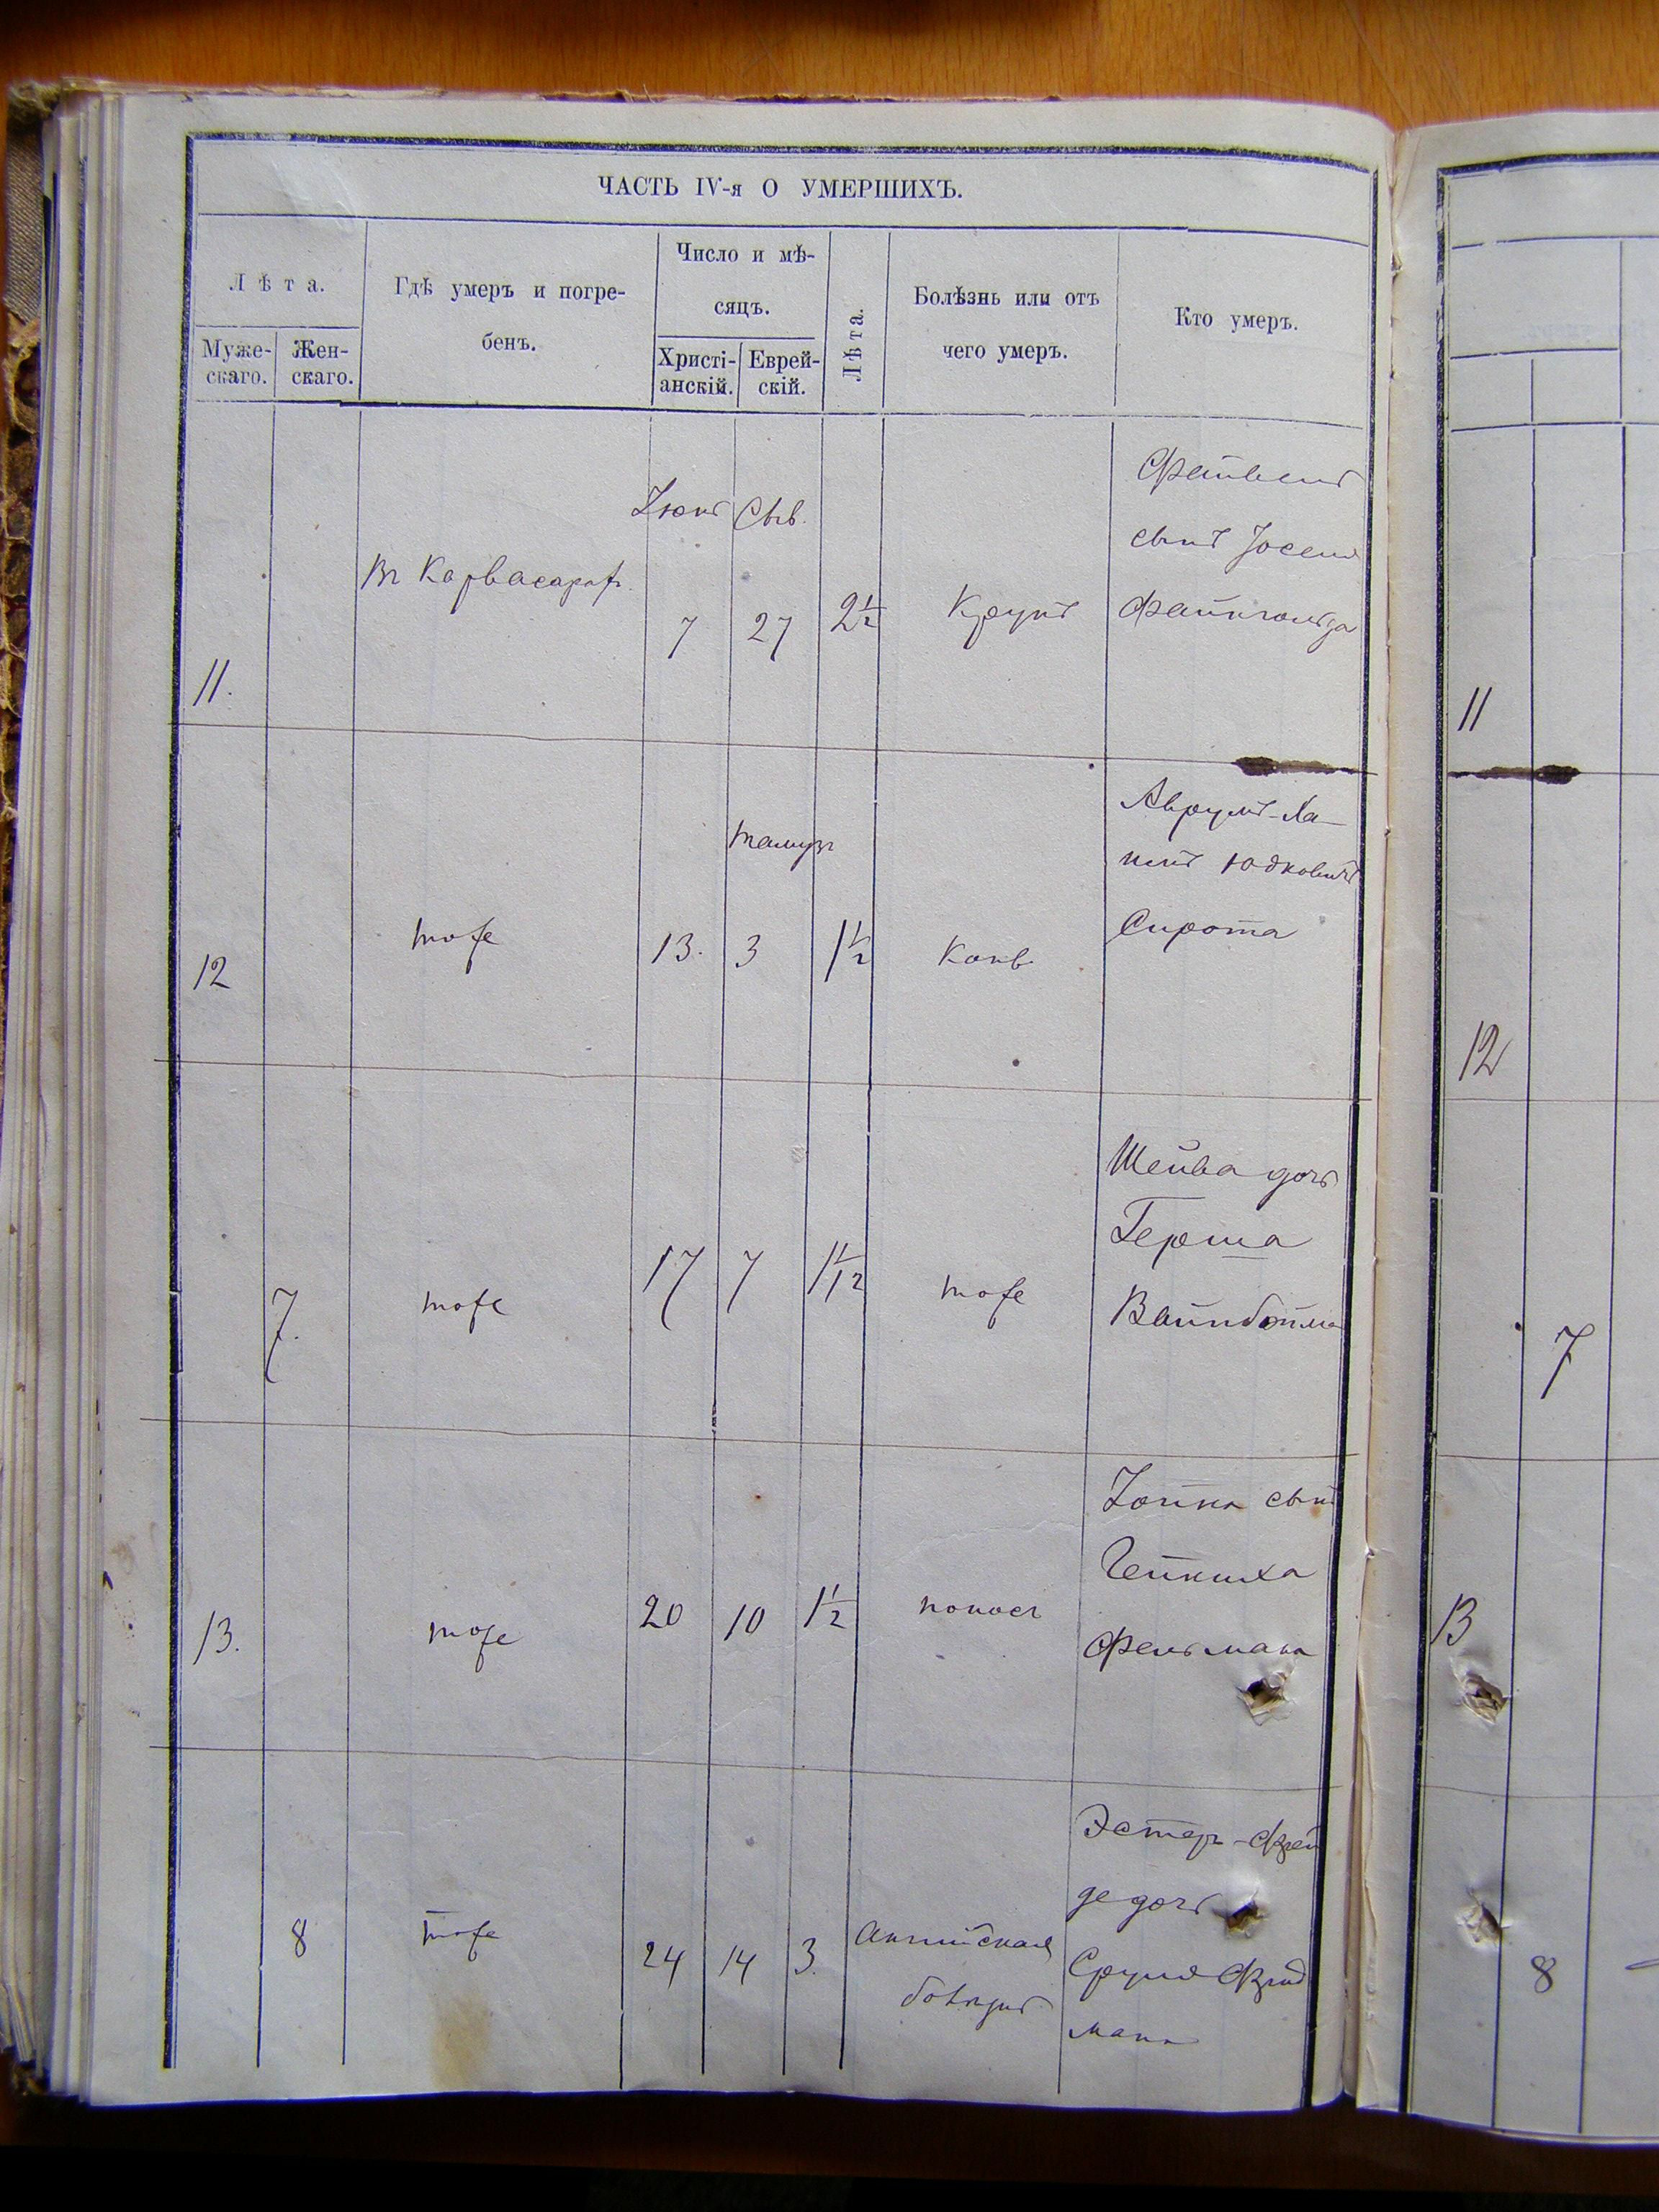 ЧАСТЬ IV-я О УМЕРШИХЪ.
Лѣта.
Муже-
скаго.
Жен-
скаго.
Гдѣ умеръ и погре-
бенъ.
Число и мѣ-
сяцъ.
Христі-
анскій.
Еврей-
скій.
Лѣта.
Болѣзнь или отъ
чего умеръ.
Кто умеръ.
11.
въ Карвасарахъ
Іюнь
7
Сив.
27
2 1/2
Крупъ
сынъ Іоселя
Файнгольда
12
тоже
13.
тамузъ
3
1 1/2
Корь
Аврумъ-Ха-
Юдковичъ
Сирота
7.
тоже
17
7
тоже
Шейва дочь
Герша
13.
тоже
20
10
1 1/2
поносъ
сынъ
Фельмана
8
тоже
24
14
3.
Английская
болѣзнь
Эстеръ-Фрей
де дочь
Сруля Фрид
мана
11
12
7
13
8